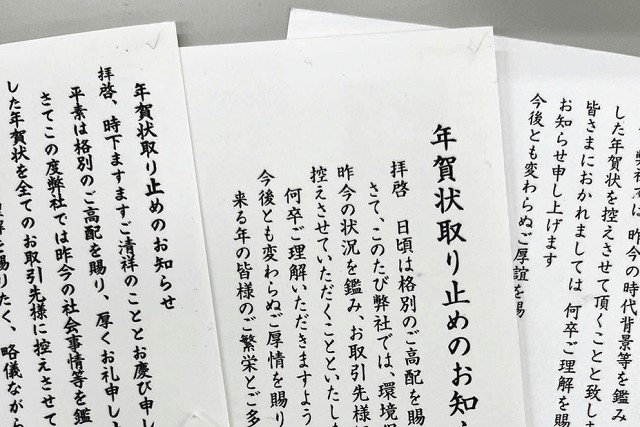 年賀状取り止めのお知らせ
拝啓、時下ますますご清祥のこととお慶び申し
平素は格別のご高配を賜り、厚くお礼申し
さてこの度弊社では昨今の社会事情等を鑑
した年賀状を全てのお取引先様に控えさせて
を賜りたく、略儀ながら
年賀状取り止めのお知
拝啓　日頃は格別のご高配を賜
さて、このたび弊社では、環境
昨今の状況を鑑み、お取引先様
控えさせていただくことといたし
何卒ご理解いただきますよう
今後とも変わらぬご厚情を賜り
来る年の皆様のご繁栄とご多
弊社では 昨今の時代背景等を鑑み
した年賀状を控えさせて頂くことと致し
皆さまにおかれましては 何卒ご理解を賜
お知らせ申し上げます
今後とも変わらぬご厚誼を賜